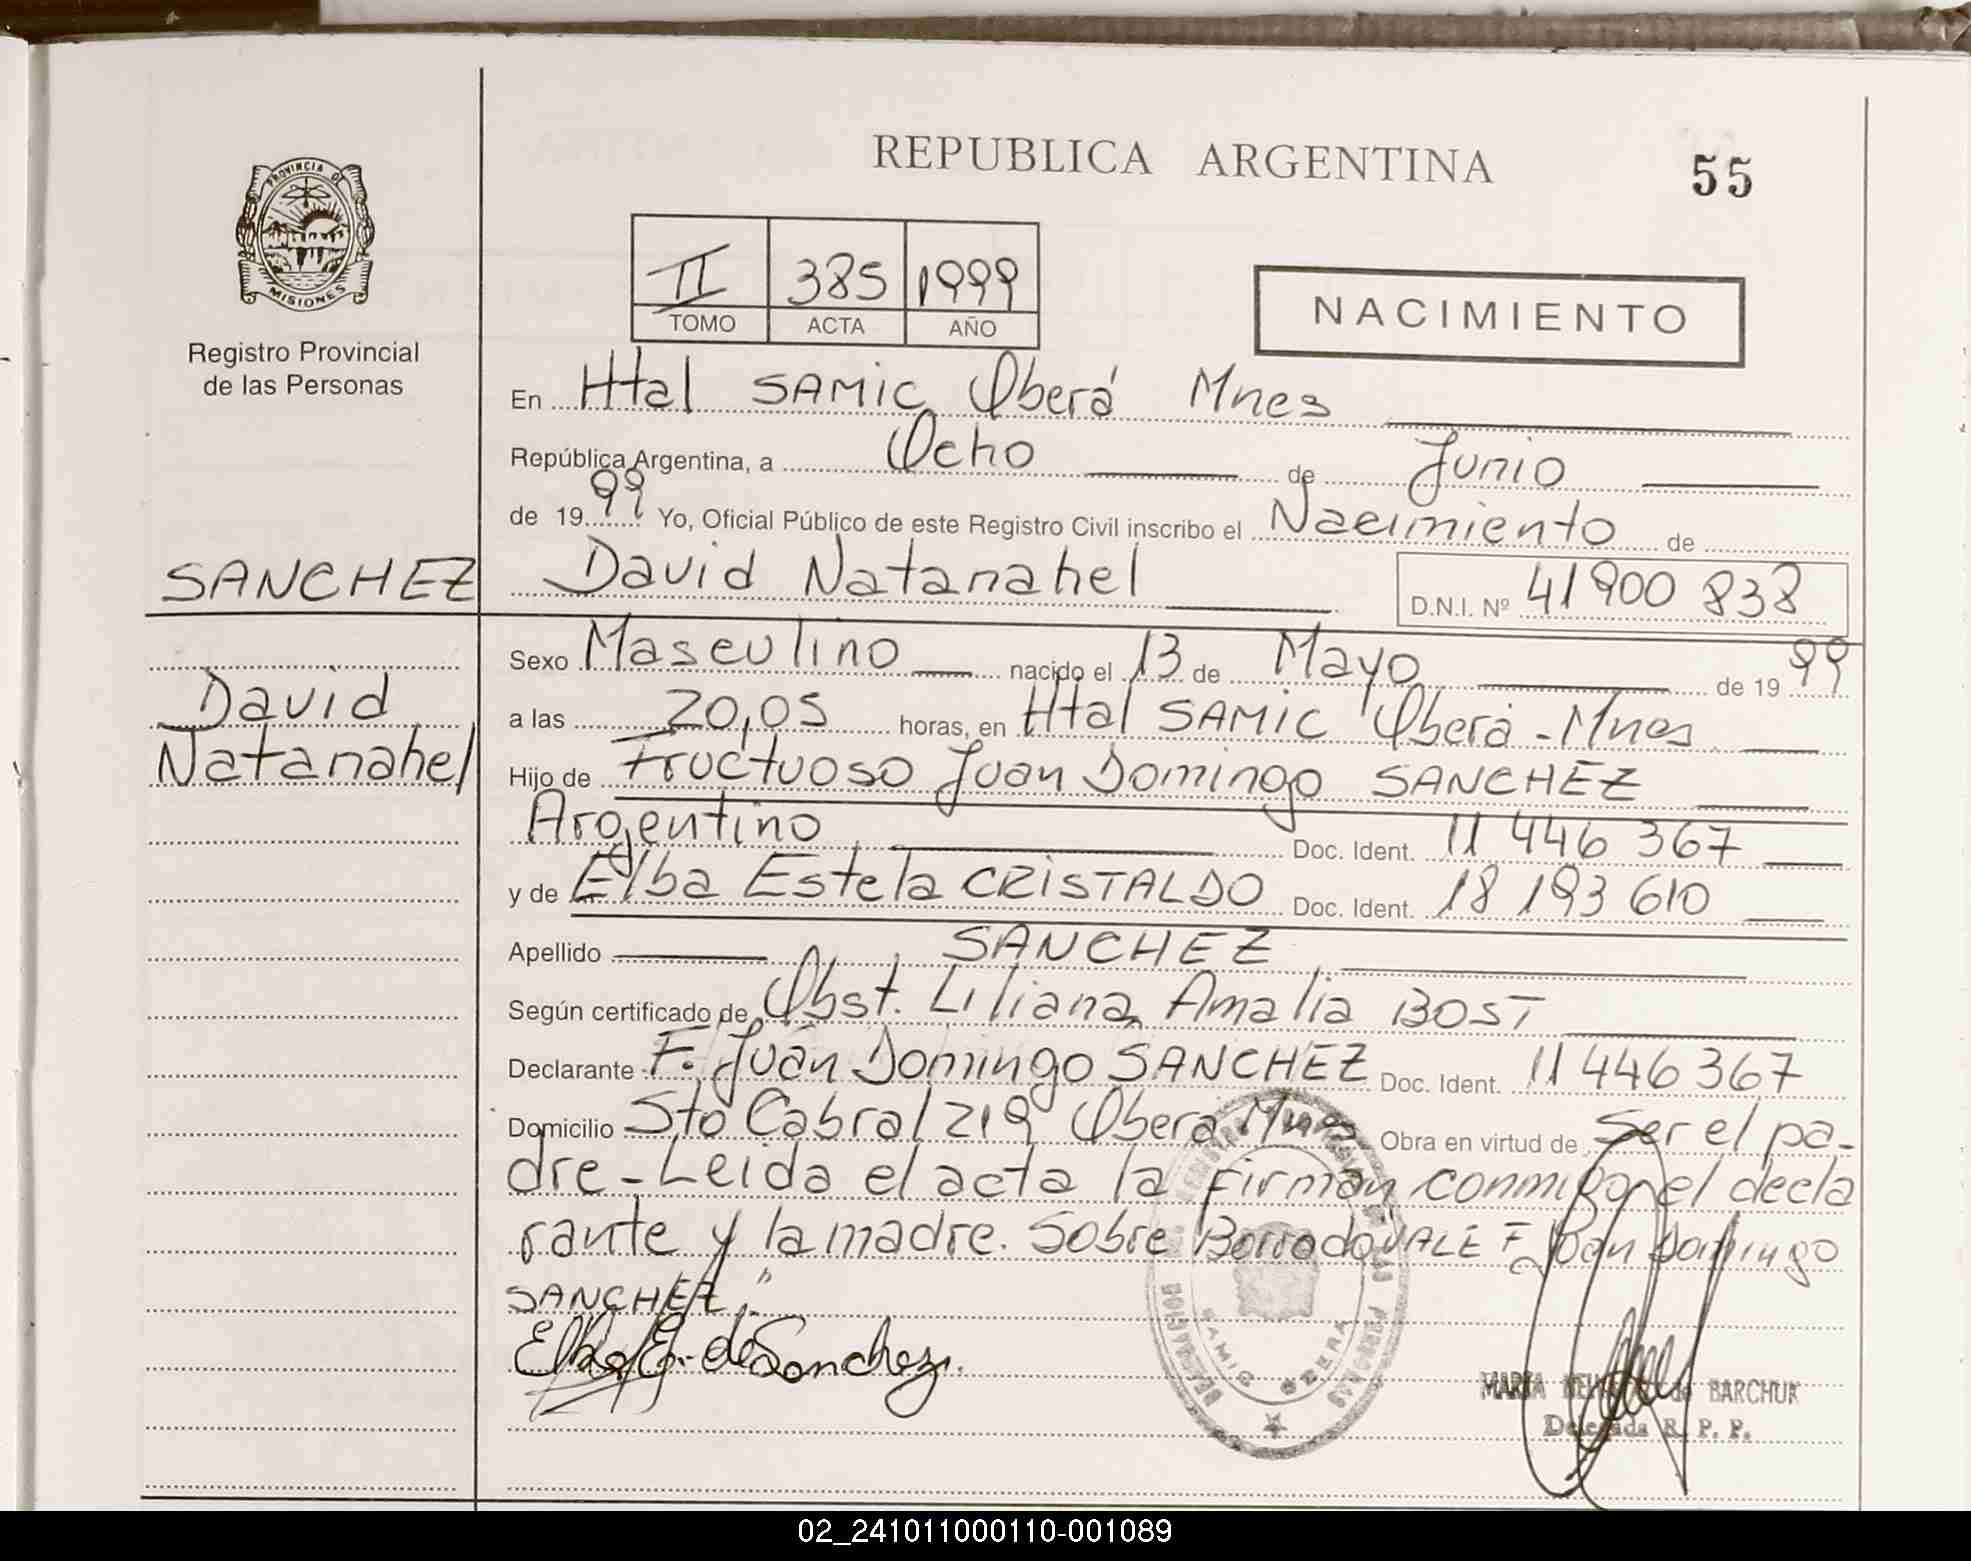 PROVINCIA DE
MISIONES
Registro Provincial
de las Personas
REPUBLICA ARGENTINA
55
II 385 1999
TOMO ACTA AÑO
NACIMIENTO
En Htal SAMIC Oberá Mnes
República Argentina, a Ocho de Junio
de 1999 Yo, Oficial Público de este Registro Civil inscribo el Nacimiento de
SANCHEZ
David Natanahel D.N.I. Nº 41 900 838
Sexo Masculino nacido el 13 de Mayo de 1999
David
Natanahel
a las 20,05 horas, en Htal SAMIC Oberá - Mnes
Hijo de Fructuoso Juan Domingo SANCHEZ
Argentino Doc. Ident. 11 446 367
y de Elba Estela CRISTALDO Doc. Ident. 18 193 610
Apellido SANCHEZ
Según certificado de Obst. Liliana Amalia BOST
Declarante F. Juan Domingo SANCHEZ Doc. Ident. 11 446 367
Domicilio Sto Cabral 219 Obera Mnes Obra en virtud de Ser el pa-
dre - Leida el acta la firman conmigo el decla
rante y la madre. Sobre Borrado VALE F. Juan Domingo
SANCHEZ"
Elba E. de Sanchez.
SAMIC OBERA
MARIA de BARCHUK
Delegada R. P. P.
02_241011000110-001089